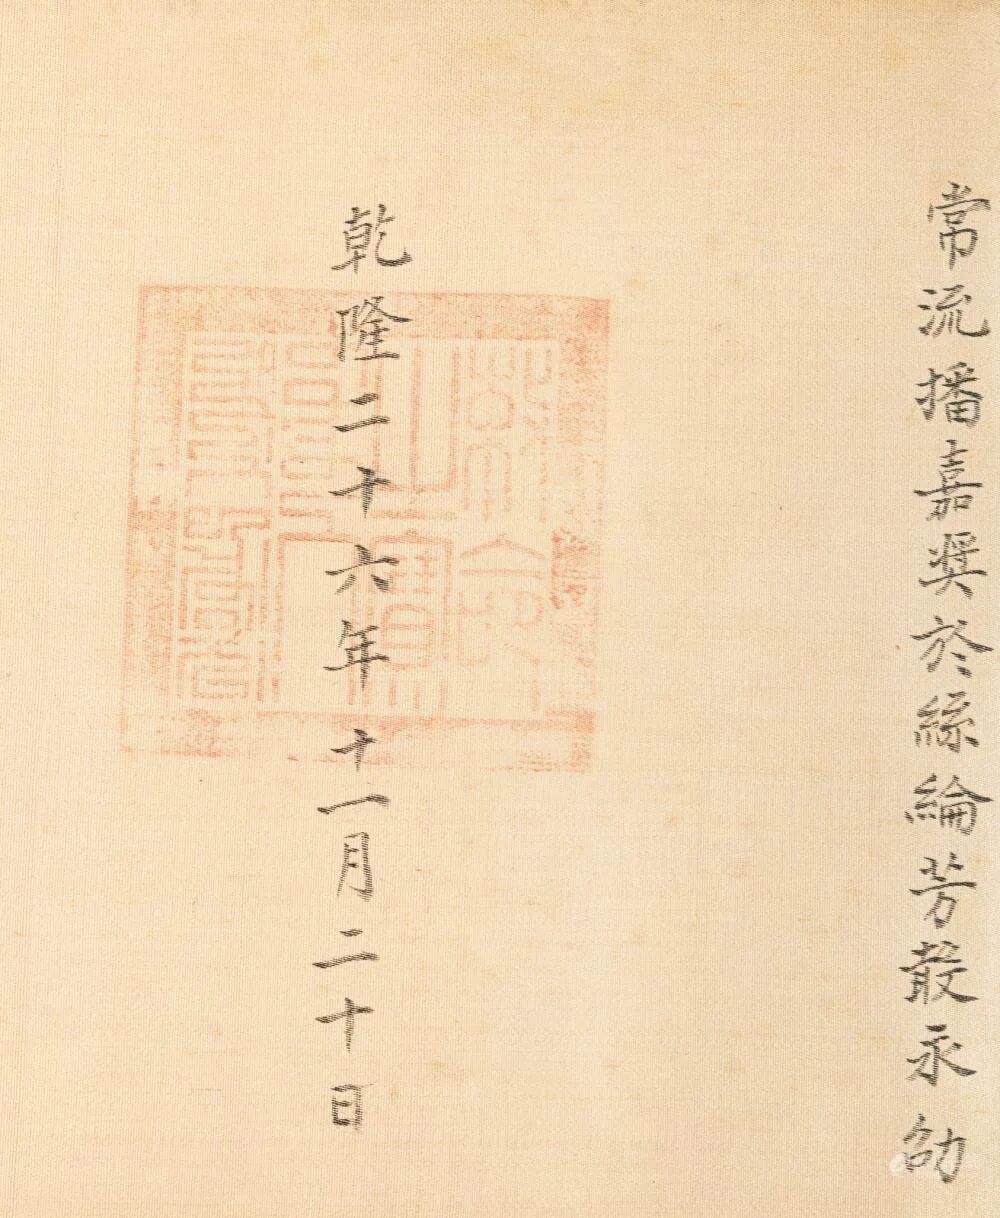 常流播嘉奬於絲綸芳永劭
乾隆二十六年十一月二十日